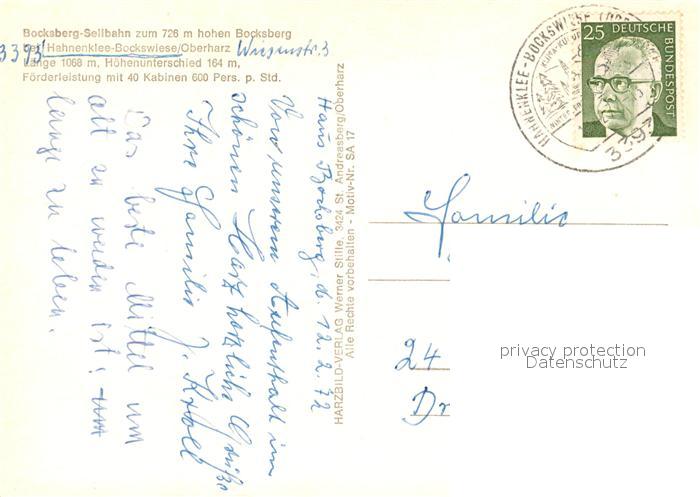 Bocksberg-Seilbahn zum 726 m hohen Bocksberg
bei Hahnenklee-Bockswiese/Oberharz
3393
Wiesenstr. 3
Länge 1068 m, Höhenunterschied 164 m,
Förderleistung mit 40 Kabinen 600 Pers. p. Std.
Haus Bocksberg, d. 12.2.72
Von unserem Aufenthalt im
schönen Harz herzliche Grüße
Ihre Familie J. Kroll
Das beste Mittel um
alt zu werden ist: um
lange zu leben.
HARZBILD-VERLAG Werner Stille, 3424 St. Andreasberg/Oberharz
Alle Rechte vorbehalten - Motiv-Nr. SA 17
HAHNENKLEE-BOCKSWIESE
3393
25 DEUTSCHE
BUNDESPOST
Familie
24
Dr
privacy protection
Datenschutz